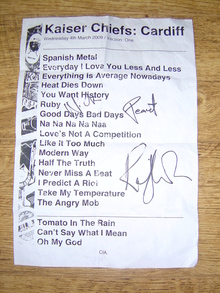 Kaiser Chiefs: Cardiff
Wednesday 4th March 2009 / Version: One
Spanish Metal
Everyday I Love You Less And Less
Everything Is Average Nowadays
Heat Dies Down
You Want History
Ruby
Good Days Bad Days
Na Na Na Na Naa
Love's Not A Competition
Like It Too Much
Modern Way
Half The Truth
Never Miss A Beat
I Predict A Riot
Take My Temperature
The Angry Mob
Tomato In The Rain
Can't Say What I Mean
Oh My God
CIA
Peanut